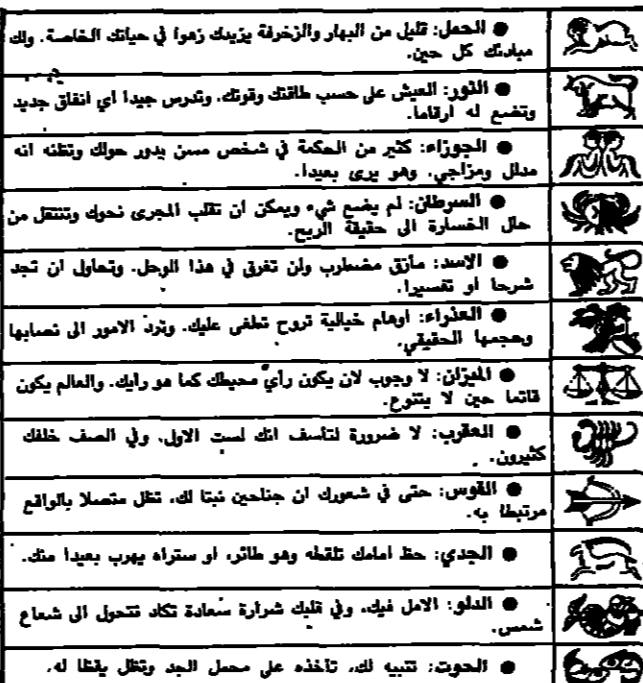 ● الحمل: قليل من البهار والزخرفة يزيدك زهوا في حياتك الخاصة. ولك
مبادئك كل حين.
● الثور: العيش على حسب طاقتك وقوتك. وتدرس جيدا اي انفاق جديد
وتضع له ارقاما.
● الجوزاء: كثير من الحكمة في شخص مسن يدور حولك وتظنه انه
مدلل ومزاجي. وهو يرى بعيدا.
● السرطان: لم يضع شيء ويمكن ان تقلب المجرى نحوك وتنتقل من
حال الخسارة الى حقيقة الربح.
● الاسد: مأزق مضطرب ولن تغرق في هذا الوحل. وتحاول ان تجد
شرحا او تفسيرا.
● العذراء: اوهام خيالية تروح تطغى عليك. وترد الامور الى نصابها
وحجمها الحقيقي.
● الميزان: لا وجوب لان يكون رأي محيطك كما هو رايك. والعالم يكون
قاتما حين لا يتنوع.
● العقرب: لا ضرورة لتأسف انك لست الاول. وفي الصف خلفك
كثيرون.
● القوس: حتى في شعورك ان جناحين نبتا لك، تظل متصلا بالواقع
مرتبطا به.
● الجدي: حظ امامك تلقطه وهو طائر، او ستراه يهرب بعيدا منك.
● الدلو: الامل فيك، وفي قلبك شرارة سعادة تكاد تتحول الى شعاع
شمس.
● الحوت: تنبيه لك، تأخذه على محمل الجد وتظل يقظا له.